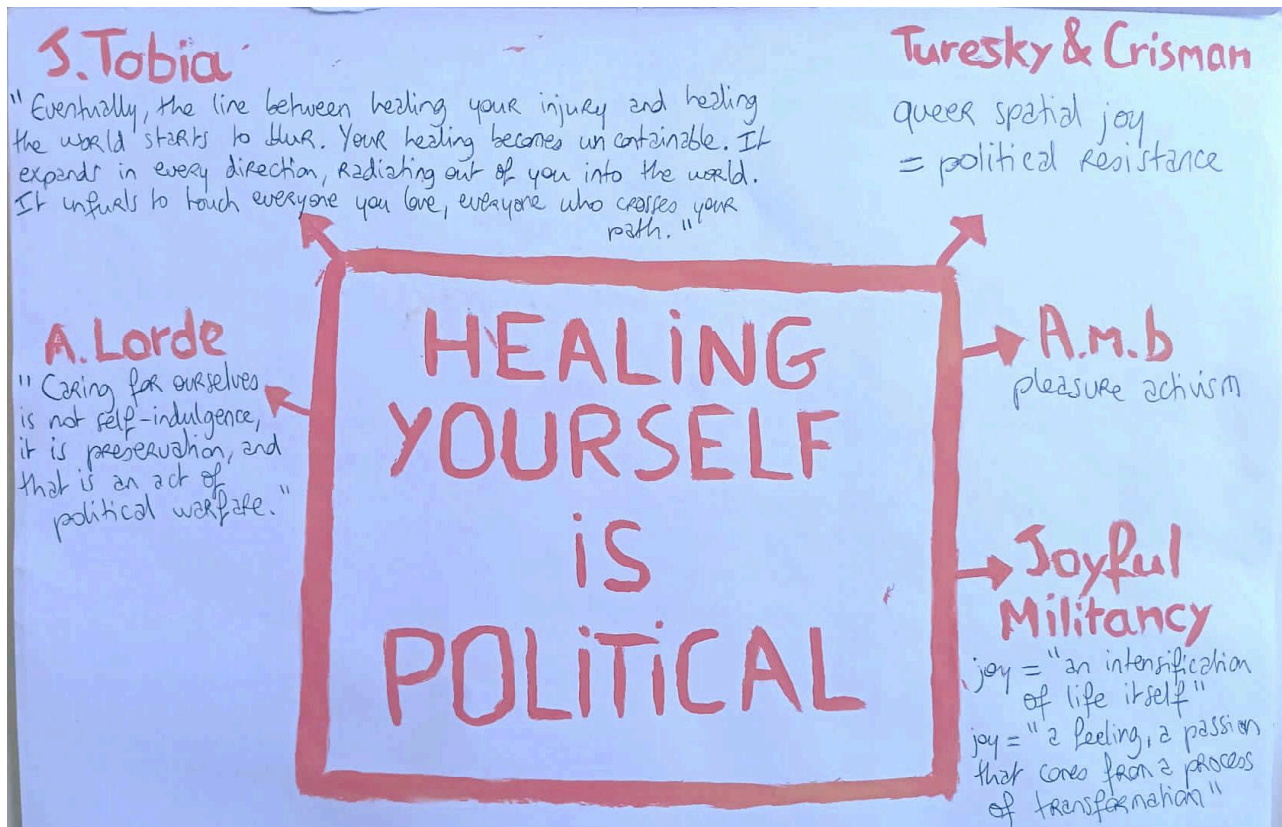 J. Tobia
"Eventually, the line between healing your injury and healing
the world starts to blur. Your healing becomes uncontainable. It
expands in every direction, radiating out of you into the world.
It unfurls to touch everyone you love, everyone who crosses your
path."
Turesky & Crisman
queer spatial joy
= political resistance
A. Lorde
"Caring for ourselves
is not self-indulgence,
it is preservation, and
that is an act of
political warfare."
HEALiNG
YOURSELF
iS
POLiTiCAL
A.m.b
pleasure activism
Joyful
Militancy
joy = "an intensification
of life itself"
joy = "a feeling, a passion
that comes from a process
of transformation"